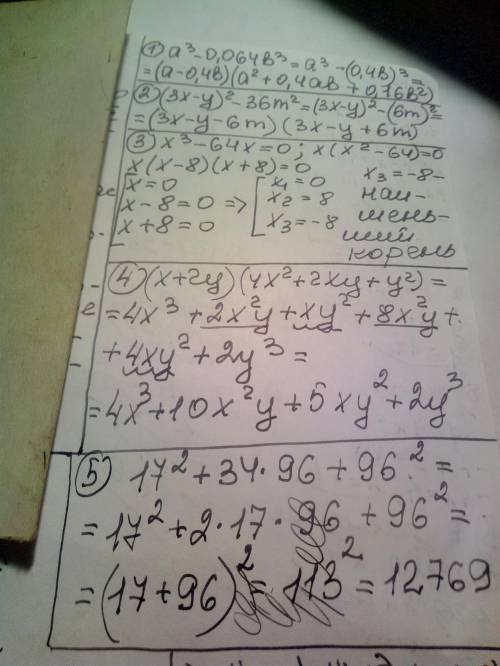 1) a³ - 0,064в³ = a³ - (0,4в)³ =
= (a - 0,4в)(a² + 0,4aв + 0,16в²)
2) (3x-y)² - 36m² = (3x-y)² - (6m)² =
= (3x-y-6m) (3x-y+6m)
3) x³ - 64x = 0 ; x(x² - 64) = 0
x(x-8)(x+8) = 0 x₃ = -8 -
x = 0 x₁ = 0 наи-
x - 8 = 0 => x₂ = 8 мень-
x + 8 = 0 x₃ = -8 ший
корень
4) (x+2y) (4x² + 2xy + y²) =
= 4x³ + 2x²y + xy² + 8x²y +
+ 4xy² + 2y³ =
= 4x³ + 10x²y + 5xy² + 2y³
5) 17² + 34 · 96 + 96² =
= 17² + 2 · 17 · 96 + 96² =
= (17 + 96)² = 113² = 12769